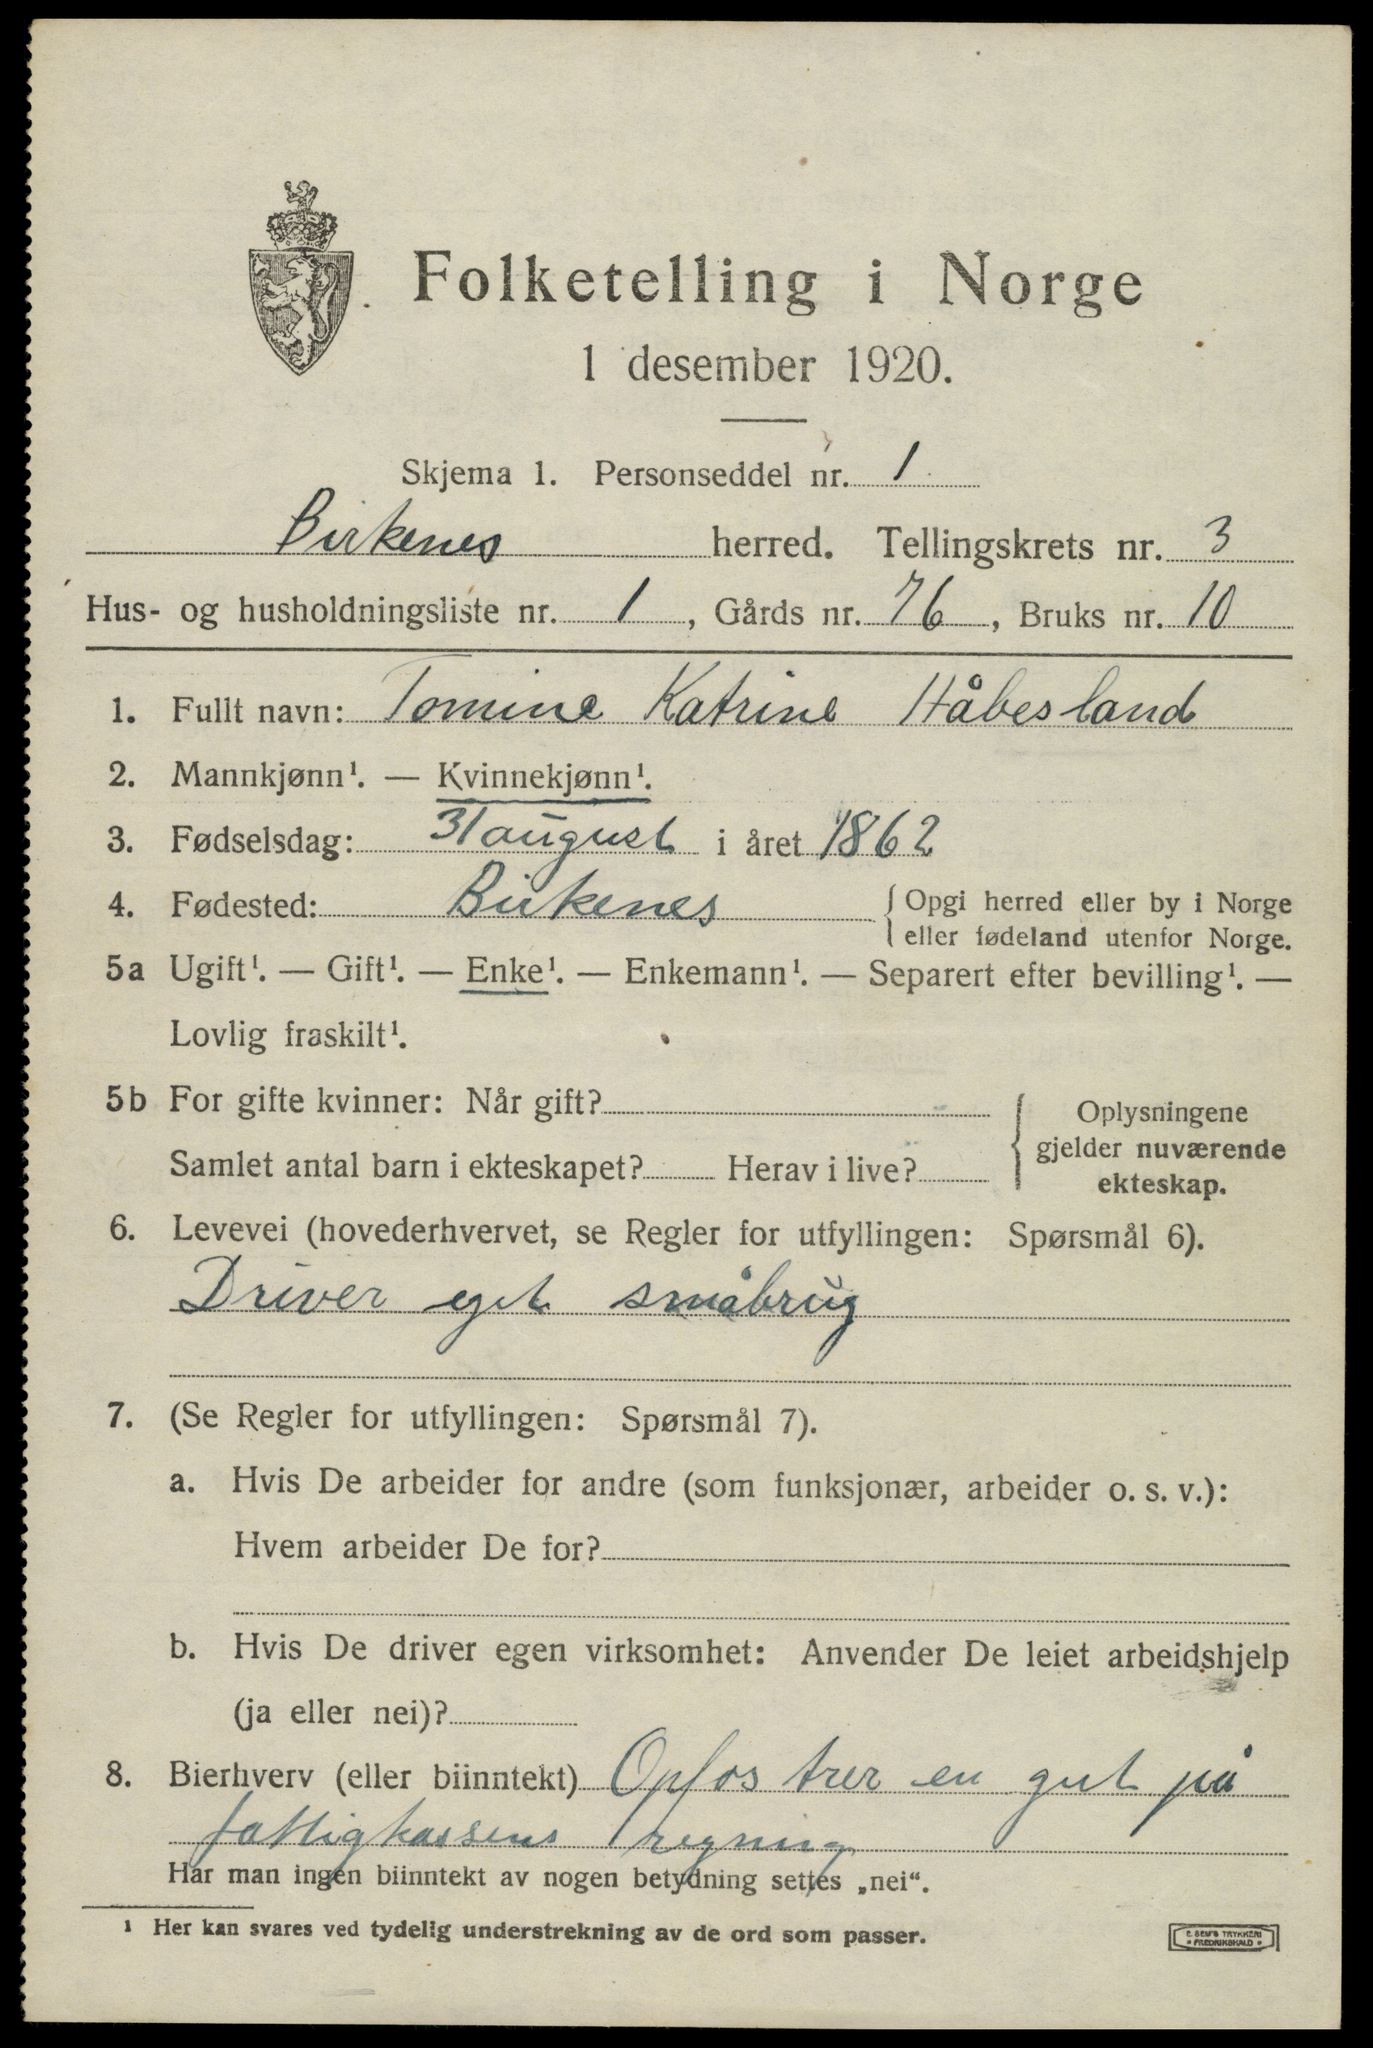 Folketelling i Norge
1 desember 1920.
Skjema 1. Personseddel nr. 1
Birkenes herred. Tellingskrets nr. 3
Hus- og husholdningsliste nr. 1, Gårds nr. 76, Bruks nr. 10
1. Fullt navn: Tomine Katrine Håbesland
2. Mannkjønn¹. — Kvinnekjønn¹.
3. Fødselsdag: 31 august i året 1862
4. Fødested: Birkenes { Opgi herred eller by i Norge
eller fødeland utenfor Norge.
5a Ugift¹. — Gift¹. — Enke¹. — Enkemann¹. — Separert efter bevilling¹. —
Lovlig fraskilt¹.
5b For gifte kvinner: Når gift?
Samlet antal barn i ekteskapet? Herav i live?
Oplysningene
gjelder nuværende
ekteskap.
6. Levevei (hovederhvervet, se Regler for utfyllingen: Spørsmål 6).
Driver eget småbrug
7. (Se Regler for utfyllingen: Spørsmål 7).
a. Hvis De arbeider for andre (som funksjonær, arbeider o. s. v.):
Hvem arbeider De for?
b. Hvis De driver egen virksomhet: Anvender De leiet arbeidshjelp
(ja eller nei)?
8. Bierhverv (eller biinntekt) Opfostrer en gut på
fattigkassens regning
Har man ingen biinntekt av nogen betydning settes „nei“.
¹ Her kan svares ved tydelig understrekning av de ord som passer.
E. SEM'S TRYKKERI
* FREDRIKSHALD *